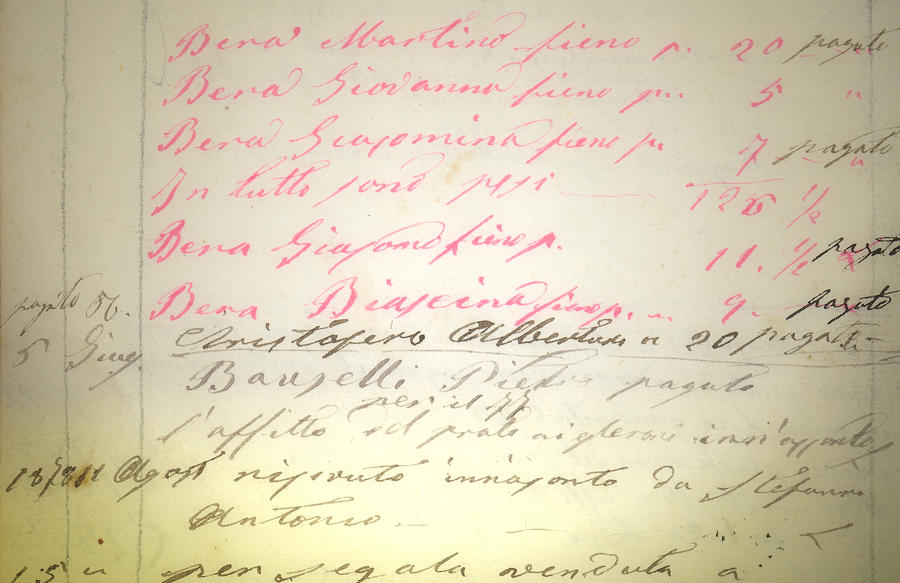 Bera Martino fieno p. 20 pagato
Bera Giovanno fieno p. 5 "
Bera Giacomina fieno p. 7 pagato
In tutto sono pesi 126 1/2
Bera Giacomo fieno p. 11. 1/2 pagato
pagato Bera Biascina fieno p. 9. pagato
Cristoforo Albertini 20 pagato
5 Giug
Bauselli Pietro pagato
per il 77
l'affitto del prato
Agost ricevuto in acconto da Stefanni
Antonio
15 " per segala venduta a